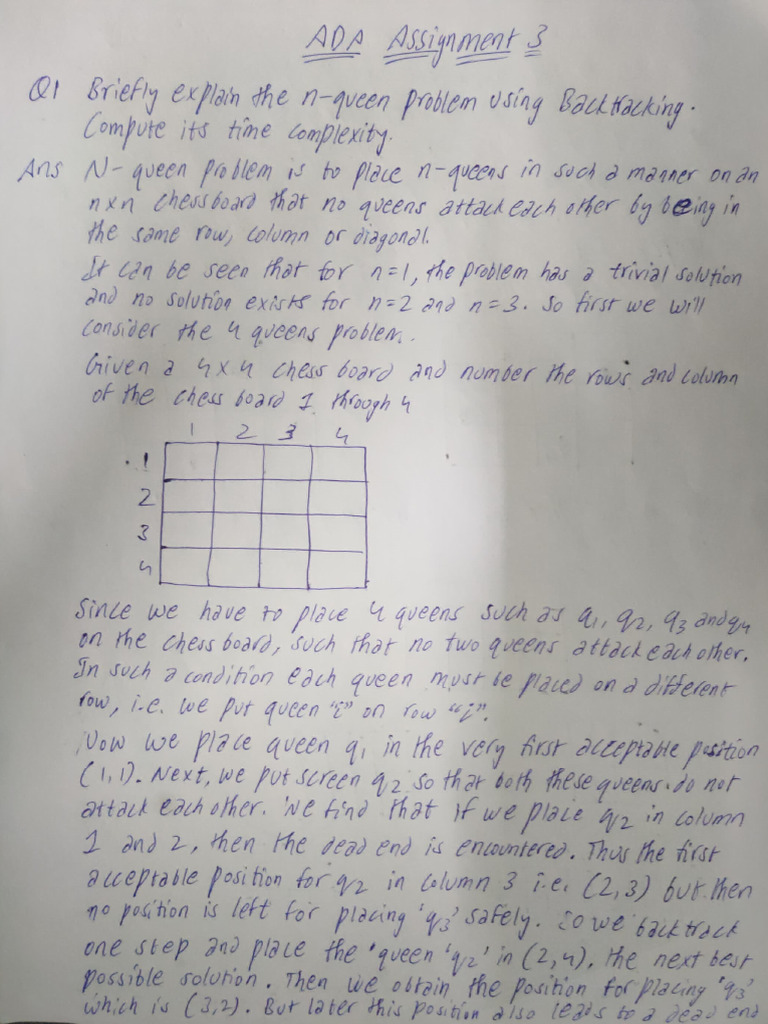 ADA Assignment 3
Q1 Briefly explain the n-queen problem using Backtracking.
Compute its time complexity.
Ans N-queen problem is to place n-queens in such a manner on an
nxn chessboard that no queens attack each other by being in
the same row, column or diagonal.
It can be seen that for n=1, the problem has a trivial solution
and no solution exists for n=2 and n=3. So first we will
consider the 4 queens problem.
Given a 4x4 chess board and number the rows and column
of the chess board 1 through 4
1 2 3 4
1
2
3
4
Since we have to place 4 queens such as q1, q2, q3 and q4
on the chess board, such that no two queens attack each other.
In such a condition each queen must be placed on a different
row, i.e. we put queen "i" on row "i".
Now we place queen q1 in the very first acceptable position
(1,1). Next, we put screen q2 so that both these queens do not
attack each other. We find that if we place q2 in column
1 and 2, then the dead end is encountered. Thus the first
acceptable position for q2 in column 3 i.e. (2,3) but then
no position is left for placing 'q3' safely. So we backtrack
one step and place the 'queen 'q2' in (2,4), the next best
possible solution. Then we obtain the position for placing 'q3'
which is (3,2). But later this position also leads to a dead end